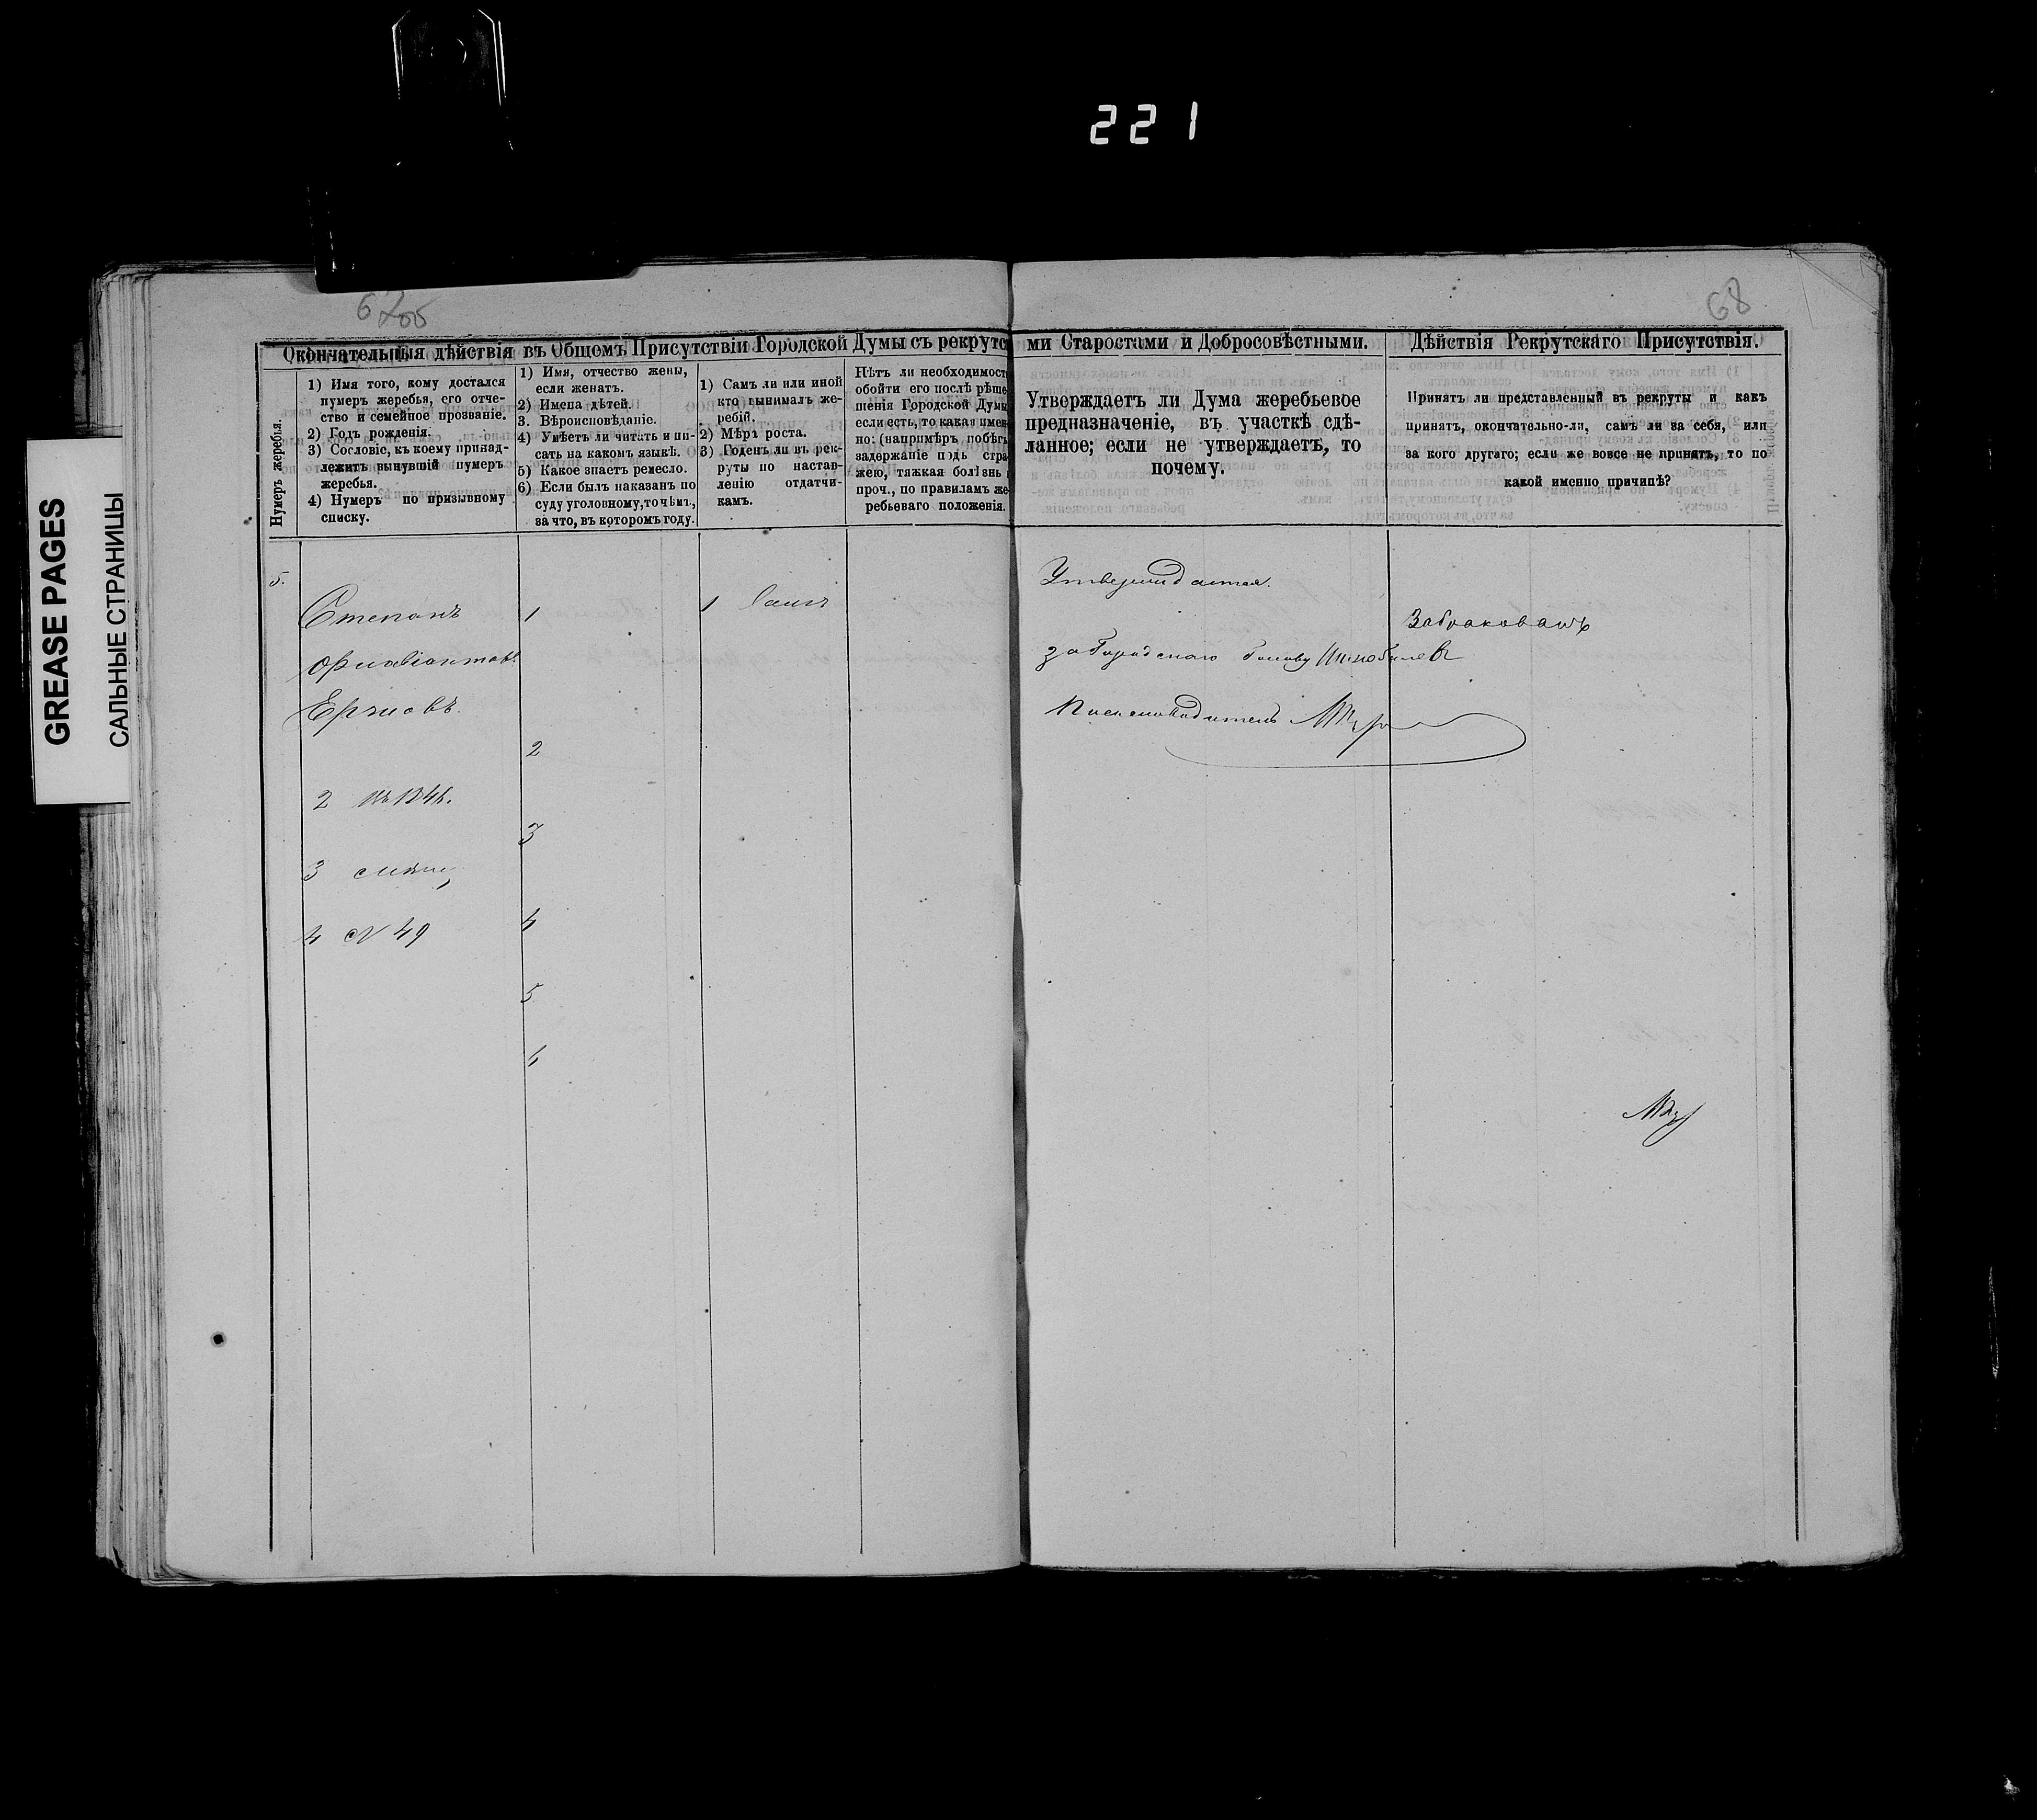 221
GREASE PAGES
САЛЬНЫЕ СТРАНИЦЫ
68
Окончательныя дѣйствія въ Общемъ Присутствіи Городской Думы съ рекрутс
ми Старостами и Добросовѣстными.
Дѣйствія Рекрутскаго Присутствія.
Нумеръ жеребья.
1) Имя того, кому достался
нумеръ жеребья, его отче-
ство и семейное прозваніе.
2) Годъ рожденія.
3) Сословіе, къ коему принад-
лежитъ вынувшій нумеръ
жеребья.
4) Нумеръ по призывному
списку.
1) Имя, отчество жены,
если женатъ.
2) Имена дѣтей.
3. Вѣроисповѣданіе.
4) Умѣетъ ли читать и пи-
сать на какомъ языкѣ.
5) Какое знаетъ ремесло.
6) Если былъ наказанъ по
суду уголовному, то чѣмъ,
за что, въ которомъ году.
1) Самъ ли или иной
кто вынималъ же-
ребій.
2) Мѣра роста.
3) Годенъ ли въ рек-
руты по настав-
ленію отдатчи-
камъ.
Нѣтъ ли необходимост
обойти его послѣ рѣше-
шенія Городской Думы
если есть, то какая имен
но: (напримѣръ побѣгъ
задержаніе подъ стра
жею, тяжкая болѣзнь и
проч., по правиламъ же
ребьеваго положенія.
Утверждаетъ ли Дума жеребьевое
предназначеніе, въ участкѣ сдѣ-
ланное; если не утверждаетъ, то
почему.
Принятъ ли представленный въ рекруты и какъ
принятъ, окончательно-ли, самъ ли за себя, или
за кого другаго; если же вовсе не принятъ, то по
какой именно причинѣ?
5.
Степанъ
1
1 Самъ
Утверждается.
Забракованъ
за Городскаго Голову
2
2
3
3
4 № 49
4
5